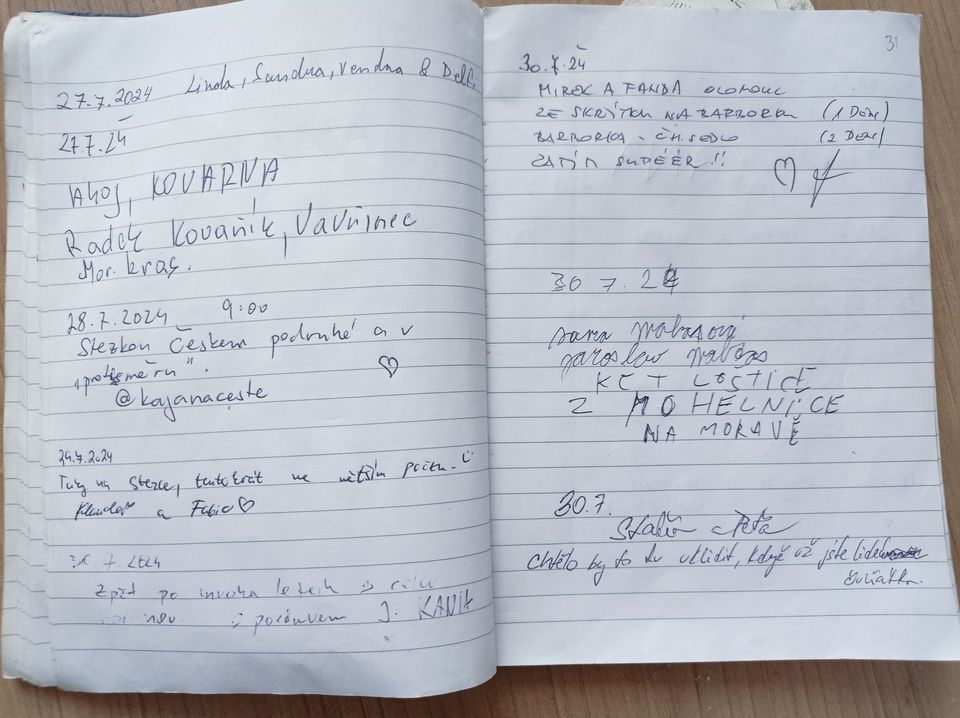 27.7.2024 Linda, Sandra, Vendna & Delf.
27.7.24
AHOJ, KOVARNA
Radek Kovařík, Vavřinec
Mor. kras.
28.7.2024 9:00
Stezkou Českem podruhé a v
„protisměru".
@kajanaceste
29.7.2024
na stezce, tentokrát ve větším počtu
a Fabio
Zpět po mnoha letech
s pozdravem J. KANIA
31
30.7.24
MIREK A FANDA OLOMOUC
ZE SKŘÍTKU NA BARBORKU (1 DEN)
BARBORKA - ČH. SEDLO (2 DEN)
ZATÍM SUPÉÉR!!
30 7.24
Jana
Jaroslav
KČT LOŠTICE
Z MOHELNICE
NA MORAVĚ
30.7.
a Péťa
Chtělo by to tu uklidit, když už jste lidé
čuňátka.